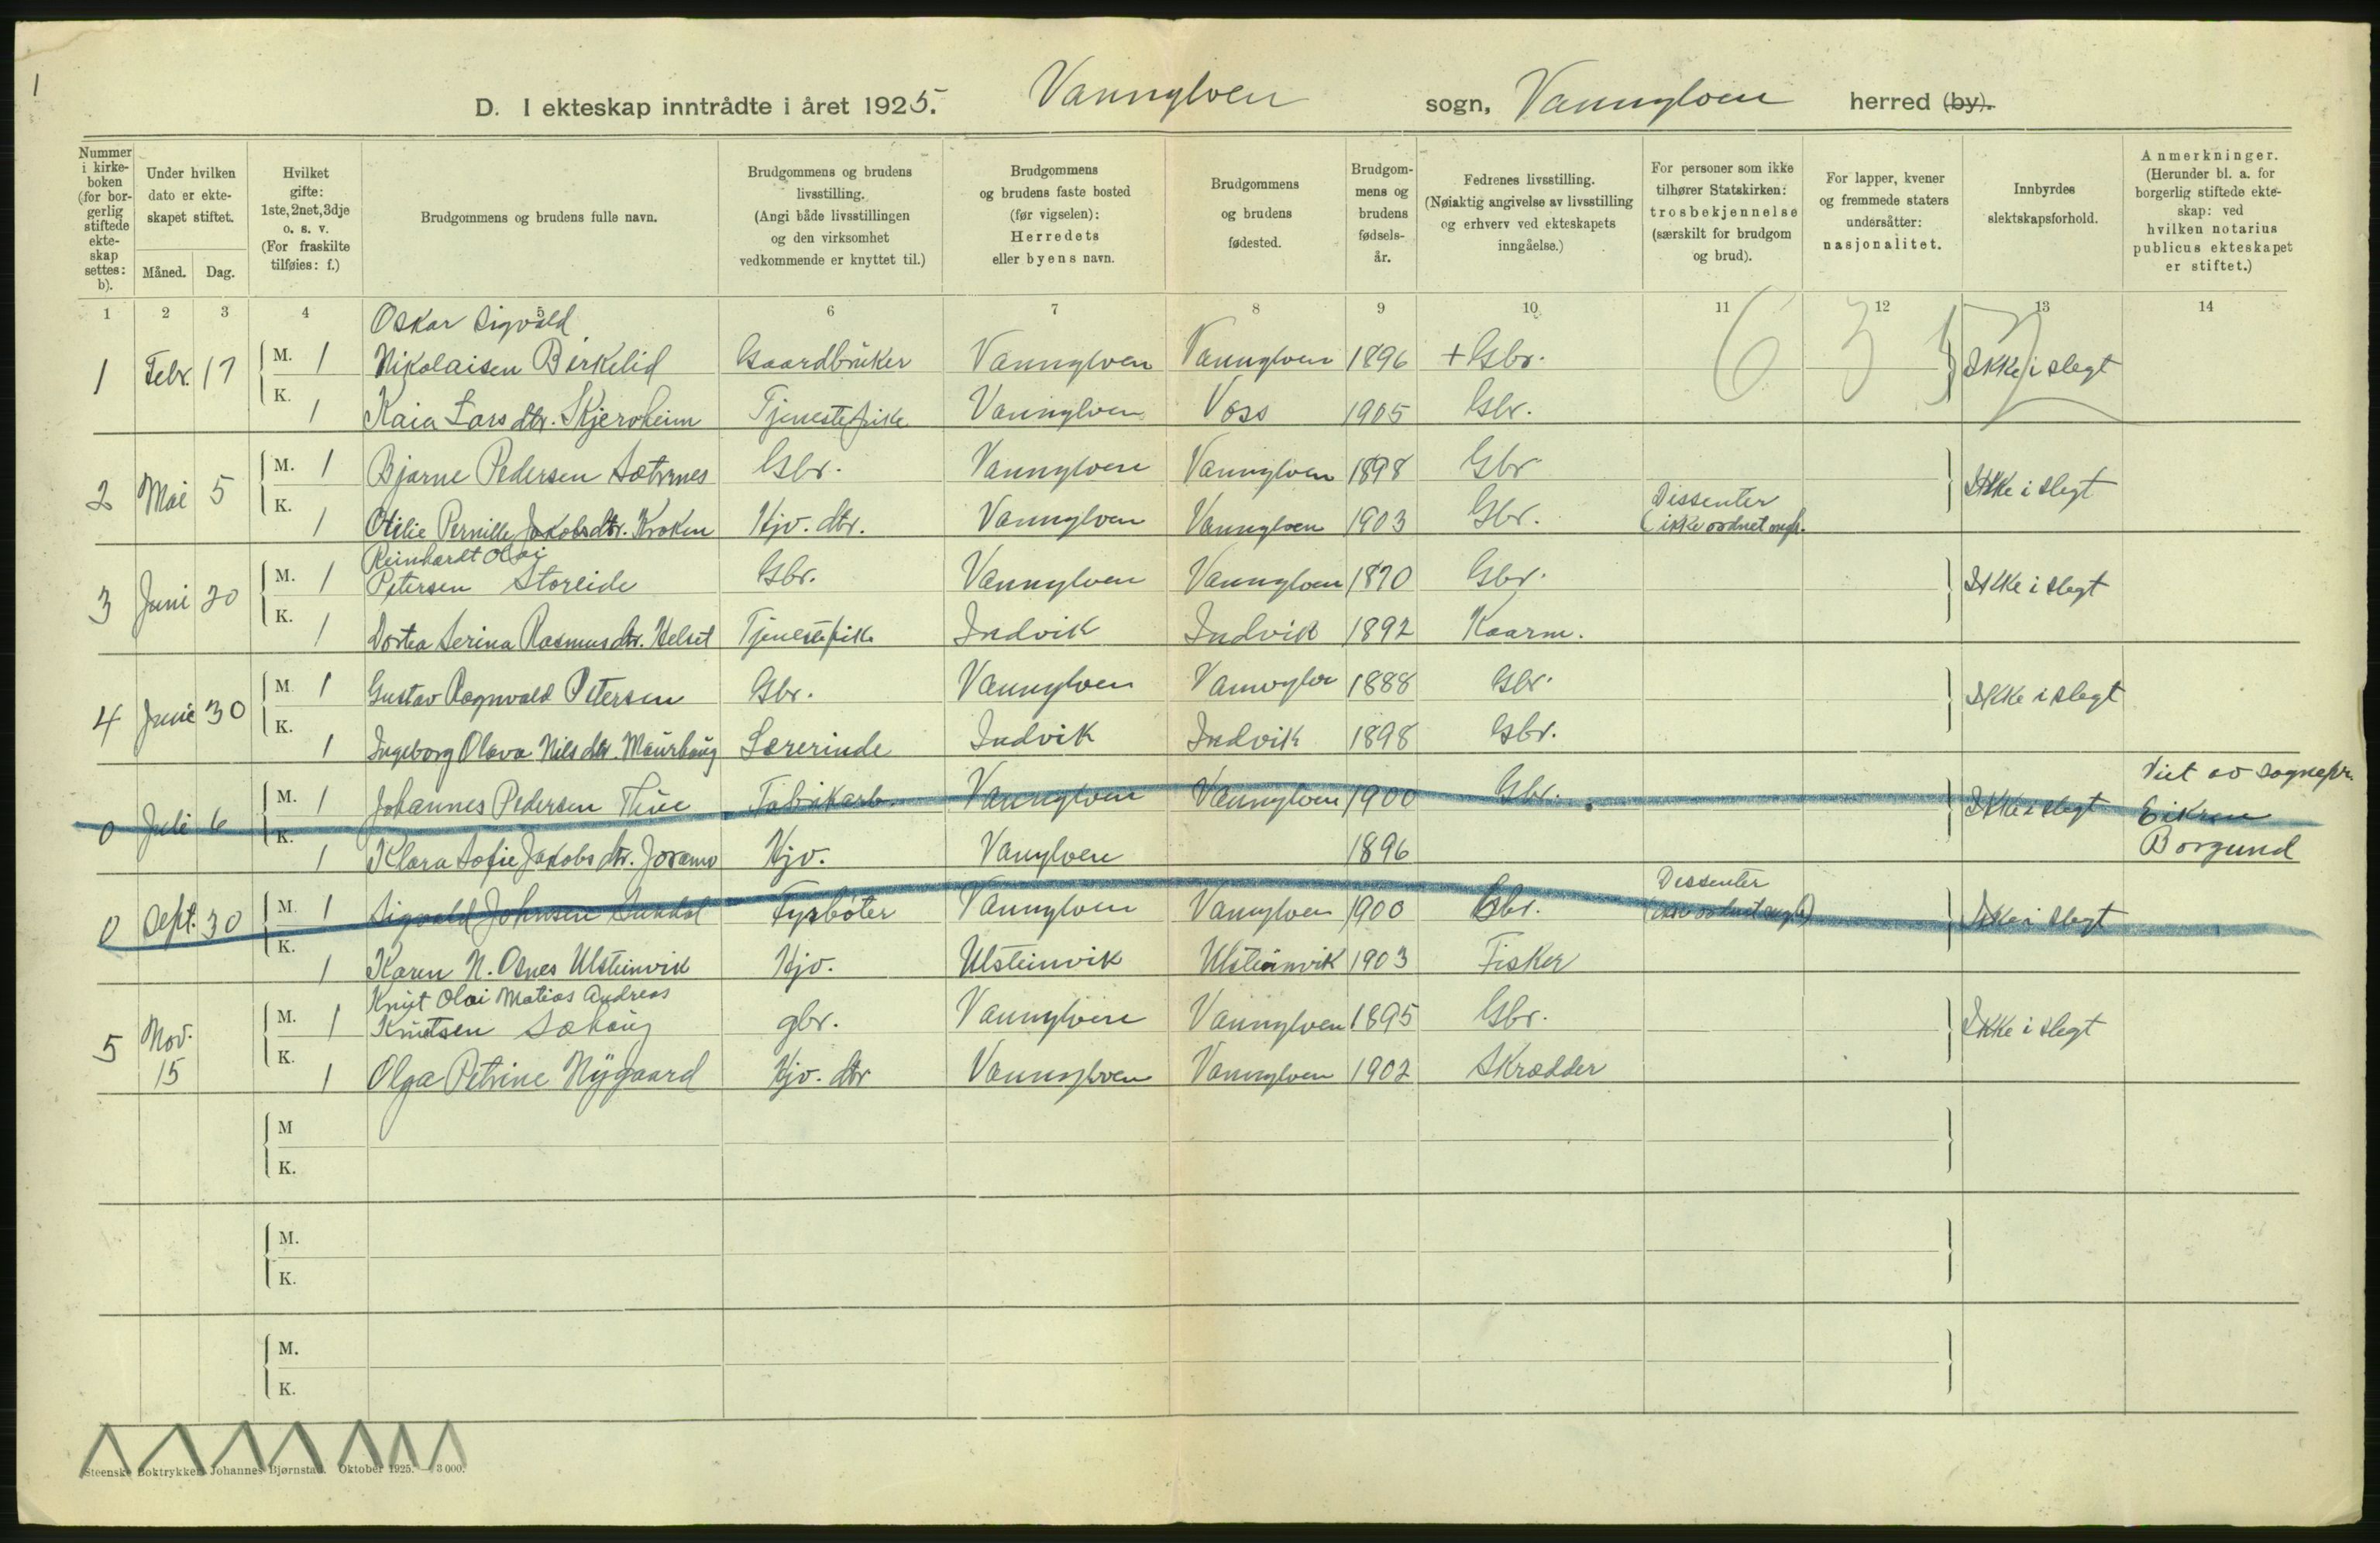 1
D. I ekteskap inntrådte i året 1925. Vannylven sogn, Vannylven herred (by).
Nummer i kirkeboken (for borgerlig stiftede ekteskap settes: b).
Under hvilken dato er ekteskapet stiftet.
Måned. Dag.
Hvilket gifte: 1ste, 2net, 3dje o. s. v. (For fraskilte tilføies: f.)
Brudgommens og brudens fulle navn.
Brudgommens og brudens livsstilling. (Angi både livsstillingen og den virksomhet vedkommende er knyttet til.)
Brudgommens og brudens faste bosted (før vigselen): Herredets eller byens navn.
Brudgommens og brudens fødested.
Brudgommens og brudens fødselsår.
Fedrenes livsstilling. (Nøiaktig angivelse av livsstilling og erhverv ved ekteskapets inngåelse.)
For personer som ikke tilhører Statskirken: trosbekjennelse (særskilt for brudgom og brud).
For lapper, kvener og fremmede staters undersåtter: nasjonalitet.
Innbyrdes slektskapsforhold.
Anmerkninger. (Herunder bl. a. for borgerlig stiftede ekteskap: ved hvilken notarius publicus ekteskapet er stiftet.)
1 2 3 4 5 6 7 8 9 10. 11 12 13 14
Oskar Sigvald
1 Febr. 17 M. 1 Nikolaisen Birkelid Gaardbruker Vannylven Vannylven 1896 + Gbr. Ikke i slegt
K. 1 Kaia Larsdtr. Skjerveheim Tjenestepike Vannylven Voss 1905 Gbr.
2 Mai 5 M. 1 Bjarne Pedersen Sætrnes Gbr. Vannylven Vannylven 1898 Gbr Ikke i slegt
Dissenter
K. 1 Otilie Pernille Jakobsdtr. Kroken Hjv. dtr. Vannylven Vannylven 1903 Gbr. (ikke ordnet
Reinhardt Olai
3 Juni 20 M. 1 Petersen Storeide Gbr. Vannylven Vannylven 1870 Gbr. Ikke i slegt
K. 1 Dortea Serina Rasmusdtr. Helset Tjenestepike Indvik Indvik 1892 Kaarm.
4 Juni 30 M. 1 Gustav Ragnvald Petersen Gbr. Vannylven Vannylven 1888 Gbr. Ikke i slegt
K. 1 Ingeborg Olava Nilsdtr. Maurhaug Lærerinde Indvik Indvik 1898 Gbr.
Viet av sognepr.
0 Juli 6 M. 1 Johannes Pedersen Thue Fabrikarb. Vannylven Vannylven 1900 Gbr. Ikke i slegt Eikrem
K. 1 Klara Sofie Jakobsdtr. Hjv. Vanylven 1896 Borgund
Dissenter
0 Sept. 30 M. 1 Sigvald Johnsen Sundal Fyrbøter Vannylven Vannylven 1900 Gbr. (ikke ordnet Ikke i slegt
K. 1 Karen N. Osnes Ulsteinvik Hjv. Ulsteinvik Ulsteinvik 1903 Fisker
Knut Olai Matias Andreas
5 Nov. 15 M. 1 Knutsen Sæhaug gbr. Vannylven Vannylven 1895 Gbr. Ikke i slegt
K. 1 Olga Petrine Nygaard Hjv. dtr Vannylven Vannylven 1902 Skrædder
M
K.
M.
K.
M.
K.
Steenske Boktrykkeri Johannes Bjørnstad. Oktober 1925. 3 000.